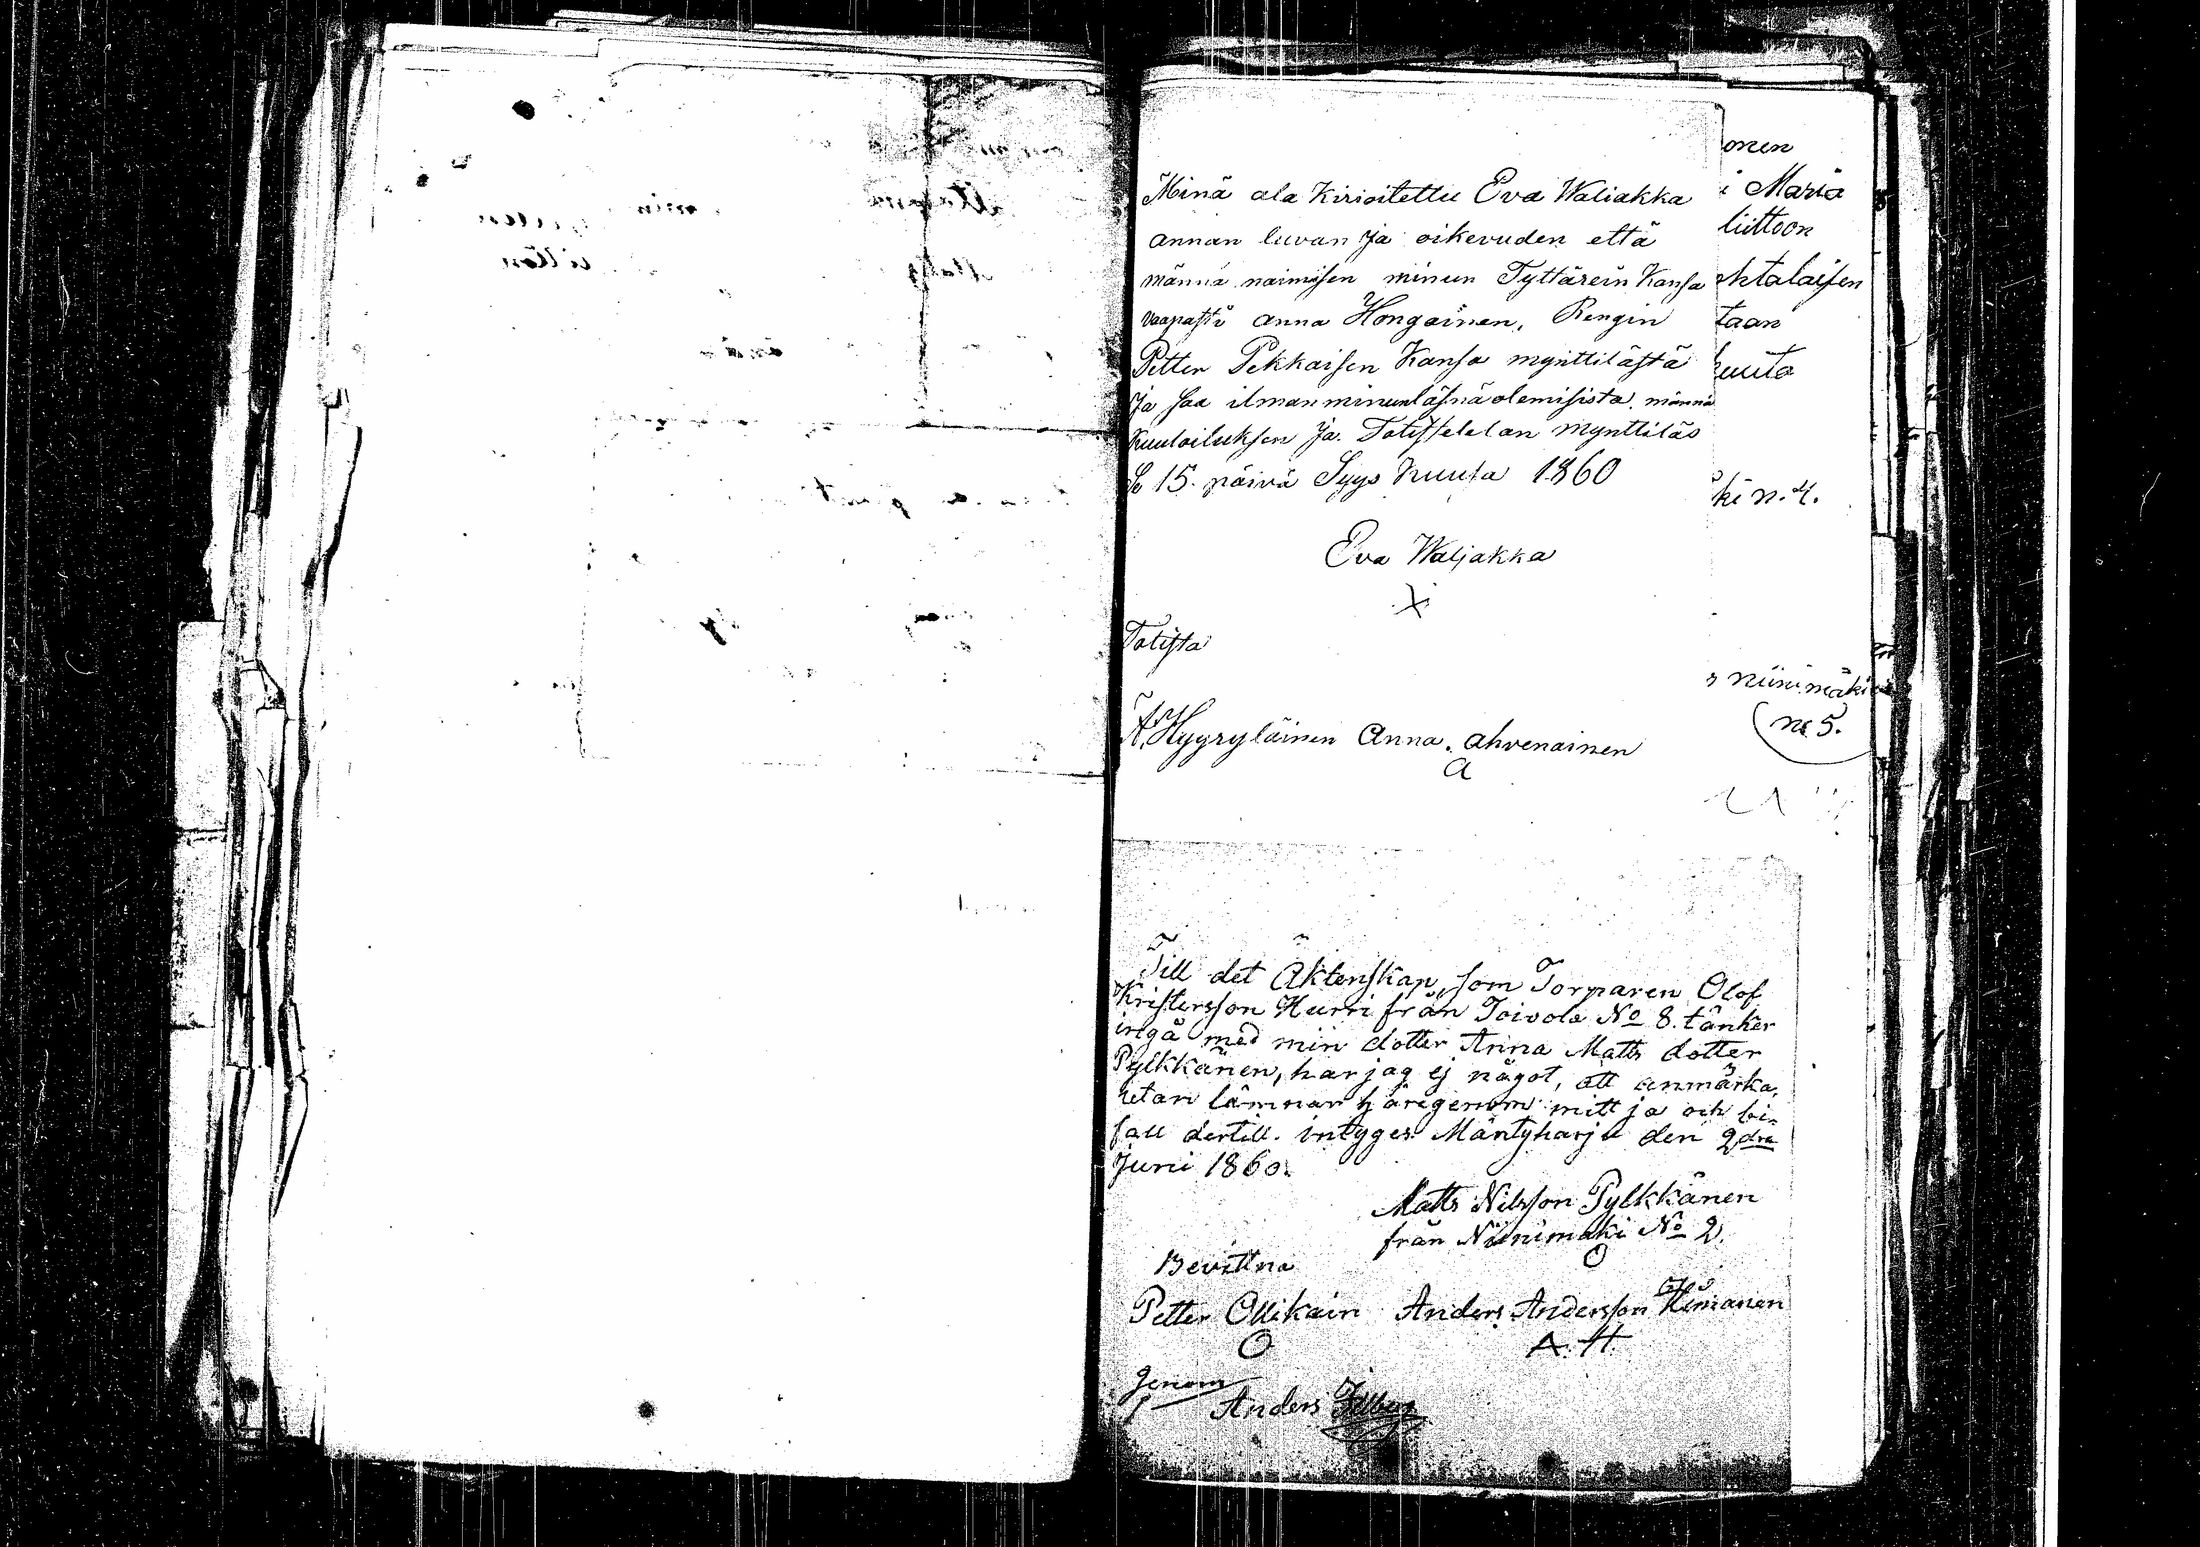 Minä ala Kirioitettu Eva Waliakka
annan luvan Ja oikeuden että
männä naimisen minun Tyttärein Kansa
vaapasti anna Hongainen, Rengin
Petter Pekkaisen Kansa mynttilästä
Ja saa ilman minun läsnä olemisista männä
Kuuloiluksen Ja. Totistelelan mynttiläs
Se 15. päivä Syys Kuuta 1860
Eva Waljakka
X
Totista
A. Hyyryläinen Anna. ahvenainen
a
onen
i Maria
liittoon
htalaisen
taan
kuuta
ki n. 4.
niinimäki
no 5.
Till det Äktenskap, som Torparen Olof
Kristersson Hurri från Toivola No 8. tänker
ingå med min dotter Anna Matts dotter
Pylkkänen, har jag ej något, att anmärka,
utan lämnar härigenom mitt ja och bi-
fall dertill. intyges Mäntyharju den 2dra
Juni 1860.
Matts Nilsson Pylkkänen
från Niinimäki No 2.
Bevittna
Petter Ollikain Anders Andersson Himanen
O A. H.
Genom
Anders